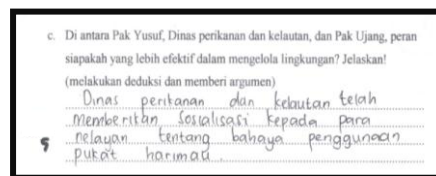 c. Di antara Pak Yusuf, Dinas perikanan dan kelautan, dan Pak Ujang, peran
siapakah yang lebih efektif dalam mengelola lingkungan? Jelaskan!
(melakukan deduksi dan memberi argumen)
Dinas perikanan dan kelautan telah
memberikan sosialisasi kepada para
5 nelayan tentang bahaya penggunaan
pukat harimau